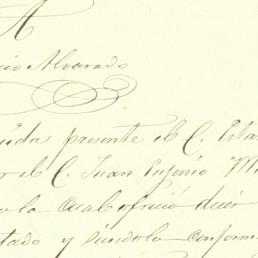 A
cio Alvarado
presente el C. Esta
el C. Juan Eugenio M
la cual ofreció decir
tado y siendolo conform